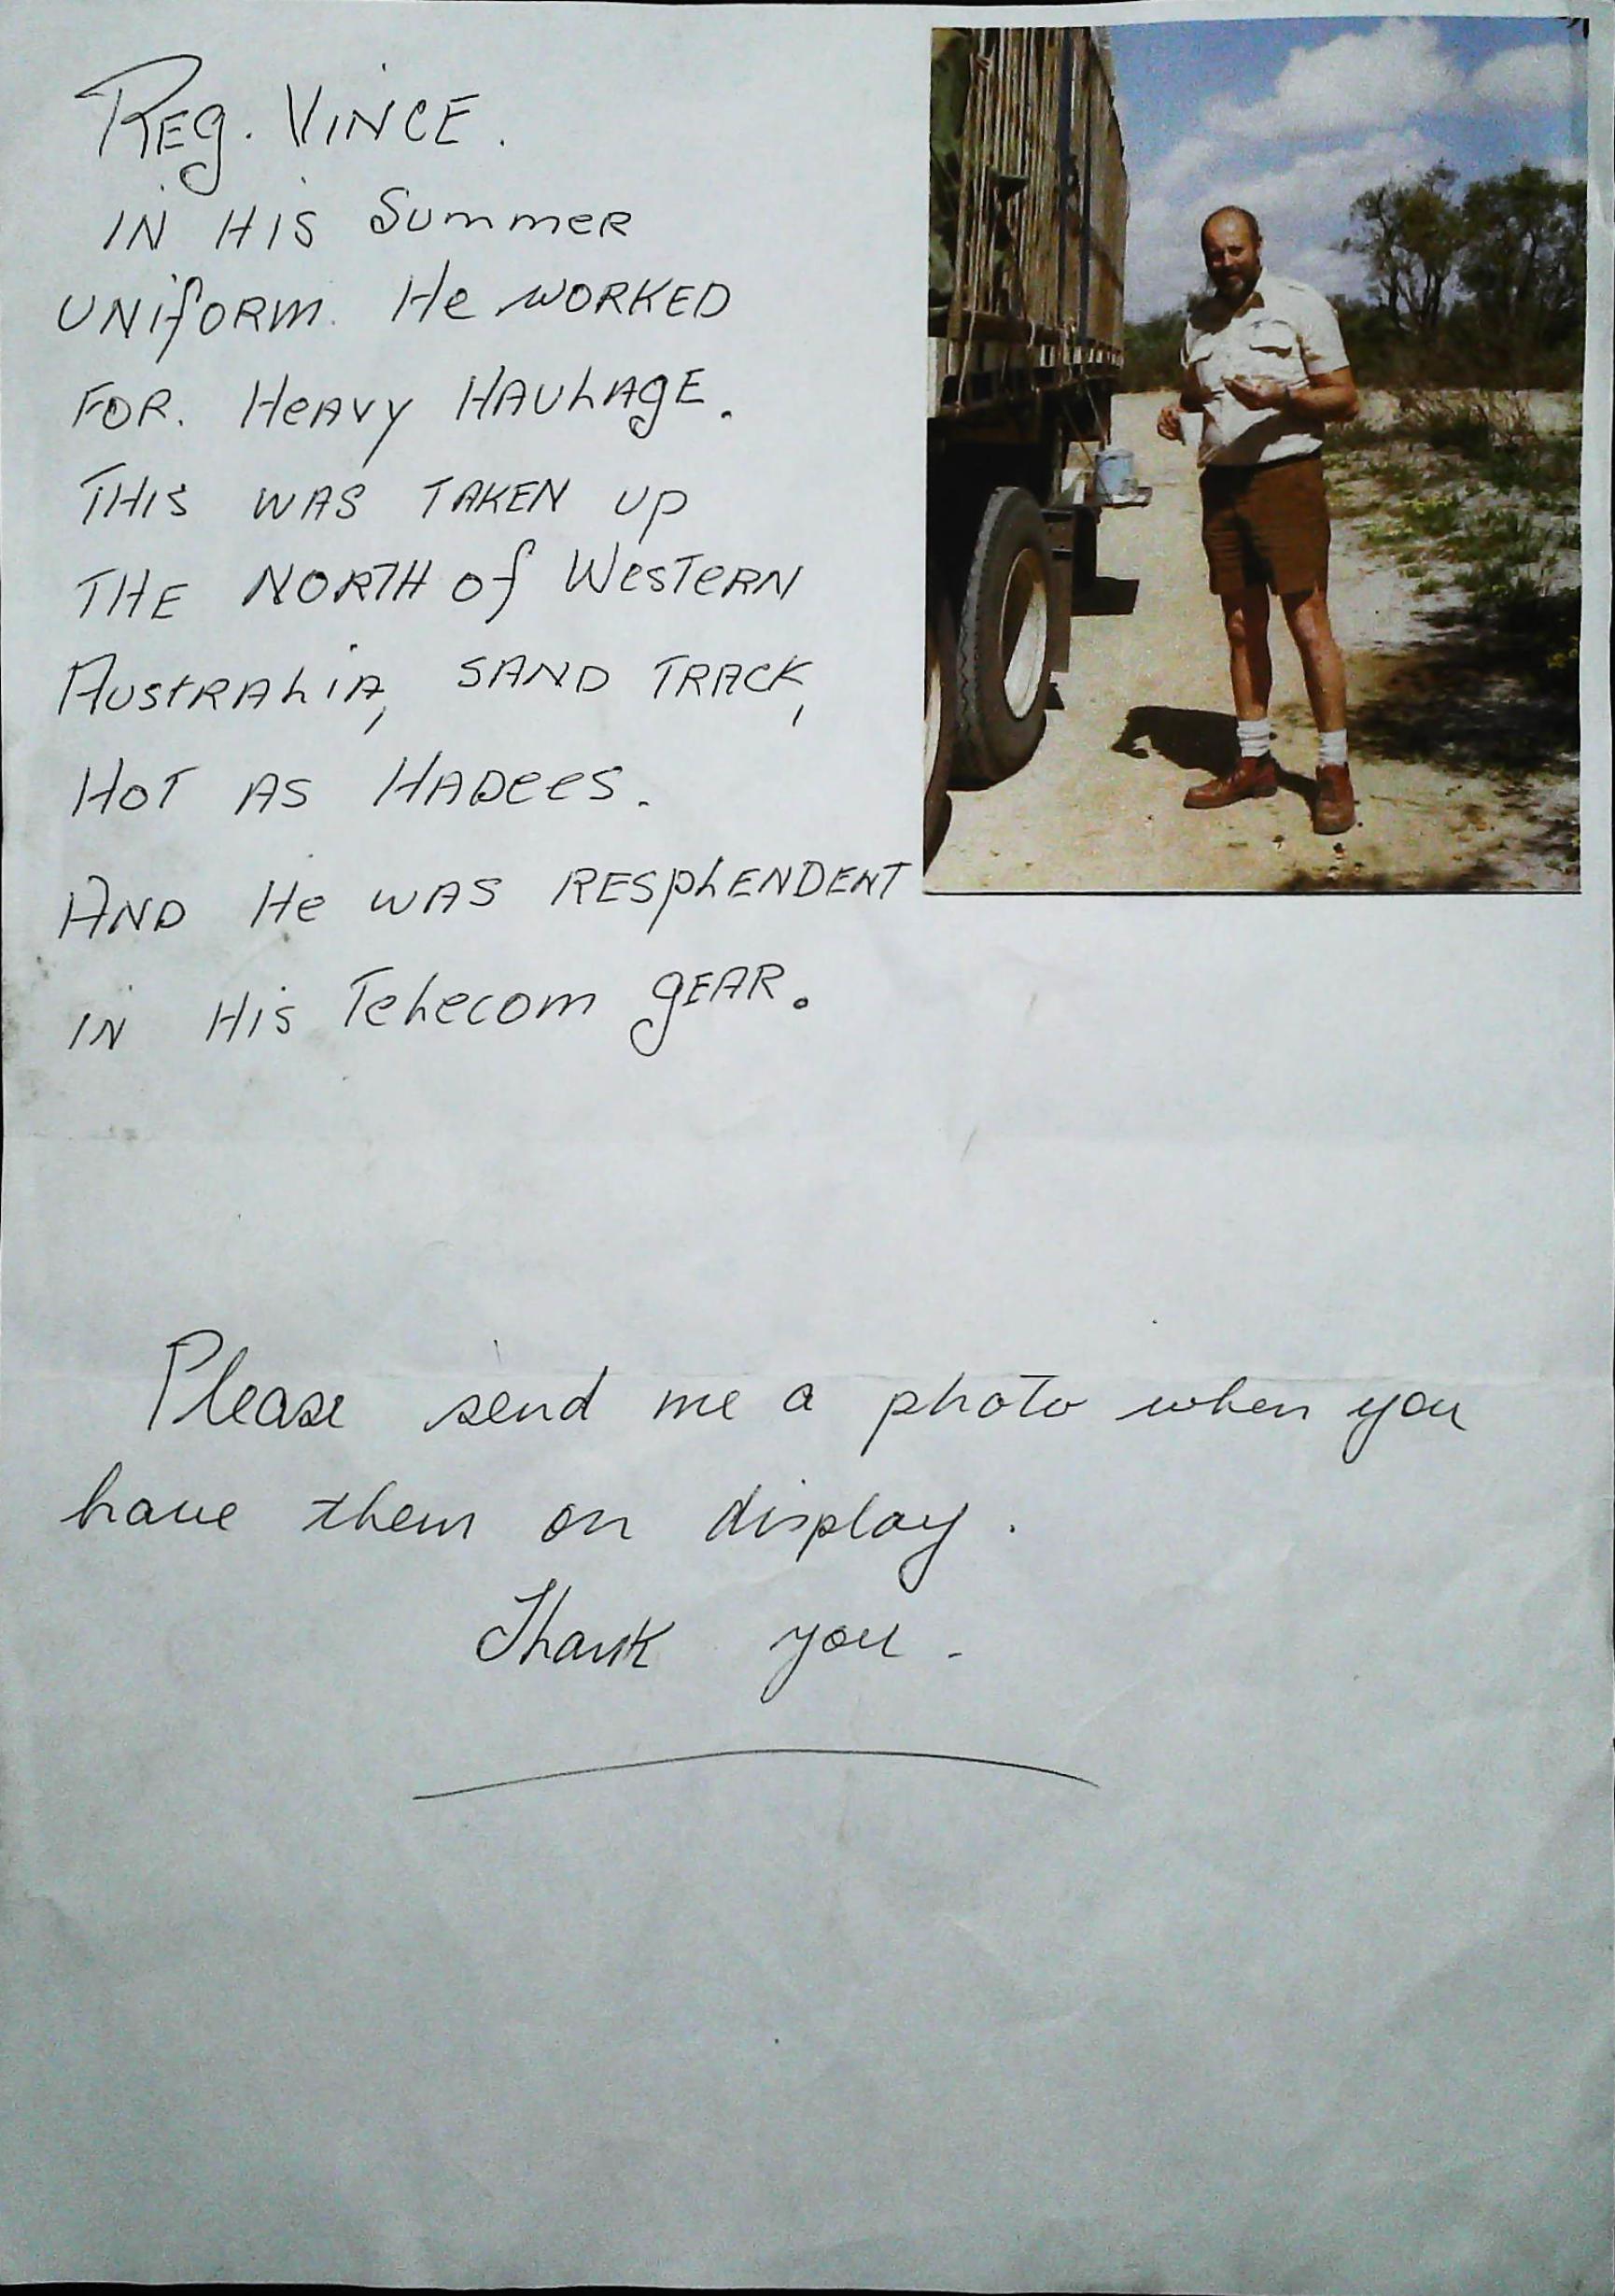 Reg. Vince.
in His Summer
uniform. He worked
for. Heavy Haulage.
This was taken up
the North of Western
Australia, sand track,
Hot as Hadees.
And He was resplendent
in His Telecom gear.
Please send me a photo when you
have them on display.
Thank you.